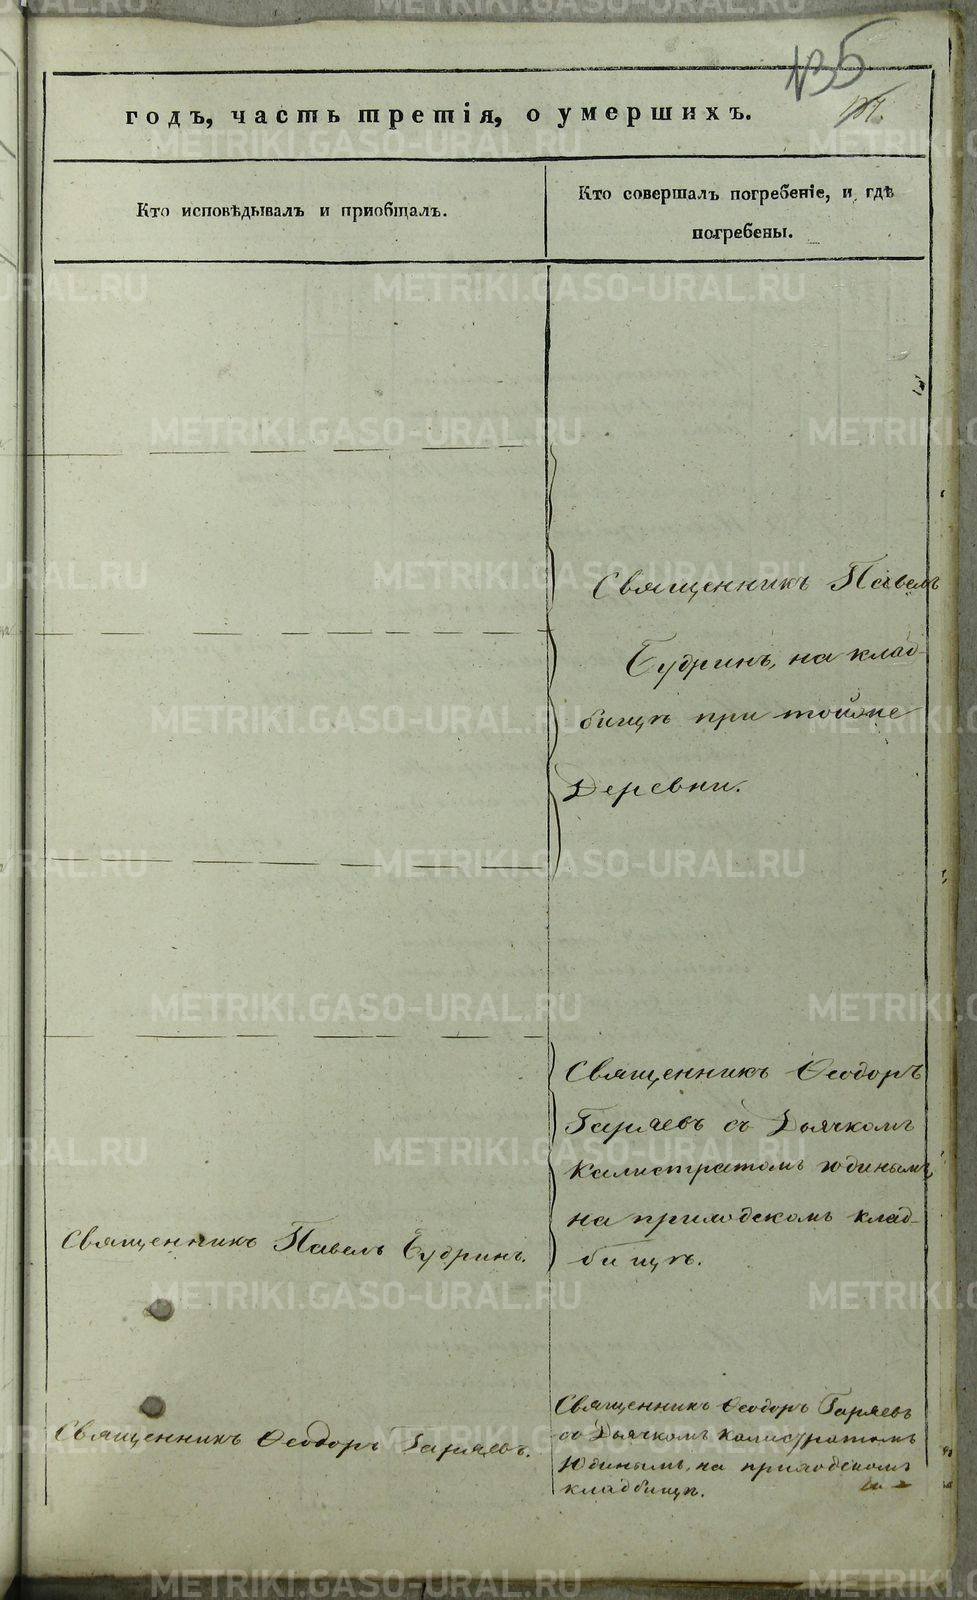 135
годъ, часть третія, о умершихъ.
Кто исповѣдывалъ и пріобщалъ.
Кто совершалъ погребеніе, и гдѣ
погребены.
Священникъ Павелъ
Будринъ, на клад-
бищѣ при тойже
Деревни.
Священникъ Ѳеодоръ
Гаряевъ съ Дьячкомъ
Калистратомъ Юдинымъ,
на приходскомъ клад-
бищѣ.
Священникъ Павелъ Будринъ.
Священникъ Ѳеодоръ Гаряевъ.
Священникъ Ѳеодоръ Гаряевъ
съ Дьячкомъ Калистратомъ
Юдинымъ, на приходскомъ
кладбищѣ.
METRIKI.GASO-URAL.RU